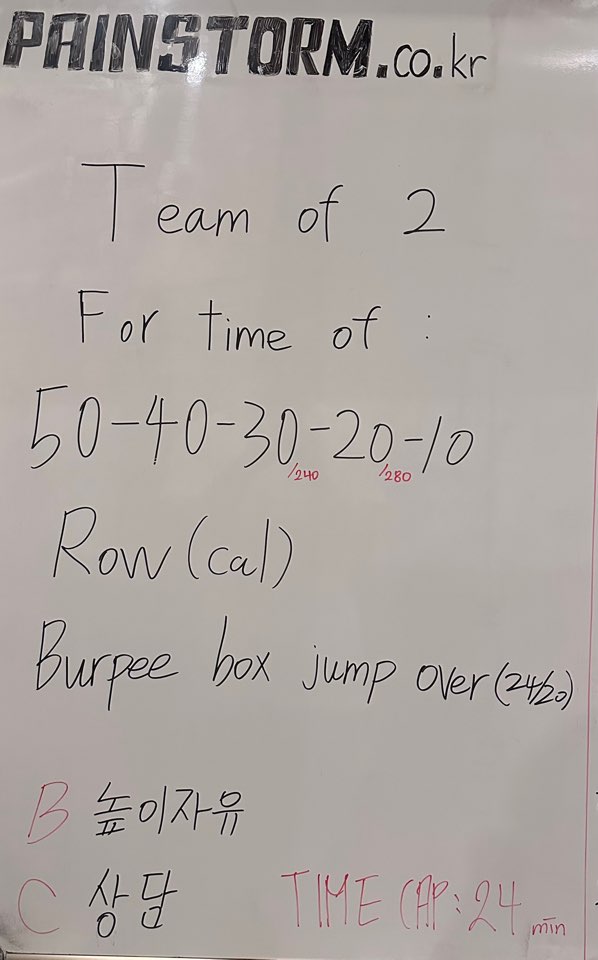 PAINSTORM.co.kr
Team of 2
For time of :
50-40-30-20-10
/240 /280
Row (cal)
Burpee box jump over (24/20)
B 높이자유
C 상담 TIME CAP : 24 min